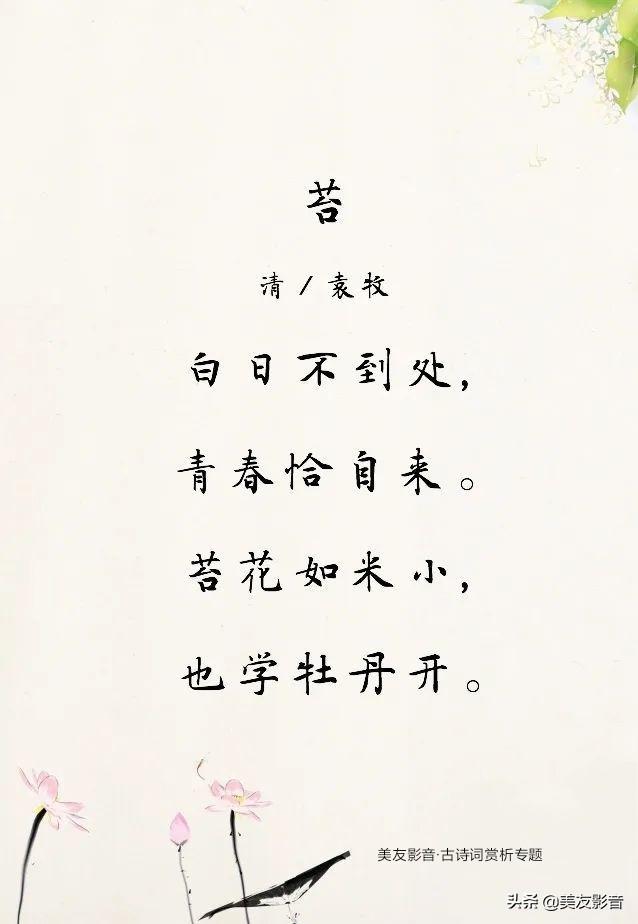 苔
清/袁牧
白日不到处，
青春恰自来。
苔花如米小，
也学牡丹开。
美友影音·古诗词赏析专题
头条 @美友影音